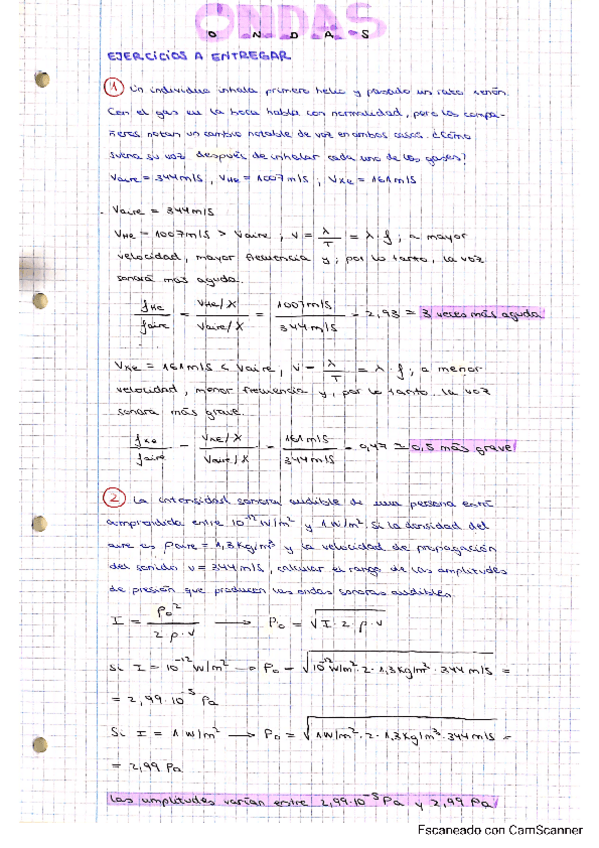 ONDAS
O N D A S
EJERCICIOS A ENTREGAR
1 Un individuo inhala primero helio y pasado un rato xenón.
Con el gas en la boca habla con normalidad, pero los compa-
ñeros notan un cambio notable de voz en ambos casos. ¿Cómo
suena su voz después de inhalar cada uno de los gases?
Vaire = 344 m/s, VHe = 1007 m/s; VXe = 161 m/s
Vaire = 344 m/s
VHe = 1007 m/s > Vaire; v = λ/T = λ · f; a mayor
velocidad, mayor frecuencia y, por lo tanto, la voz
sonará más aguda.
fHe/faire = VHe/λ / Vaire/λ = 1007 m/s / 344 m/s = 2,93 ≃ 3 veces más aguda
VXe = 161 m/s < Vaire, v = λ/T = λ · f; a menor
velocidad, menor frecuencia y, por lo tanto, la voz
sonará más grave.
fXe/faire = VXE/λ / Vaire/λ = 161 m/s / 344 m/s = 0,47 ≃ 0,5 más grave
2 La intensidad sonora audible de una persona está
comprendida entre 10⁻¹² W/m² y 1 W/m². Si la densidad del
aire es ρaire = 1,3 Kg/m³ y la velocidad de propagación
del sonido v = 344 m/s, calcular el rango de las amplitudes
de presión que producen las ondas sonoras audibles.
I = P₀² / 2 ρ · v ⟶ P₀ = √I · 2 · ρ · v
Si I = 10⁻¹² W/m² ⟶ P₀ = √10⁻¹² W/m² · 2 · 1,3 Kg/m³ · 344 m/s =
= 2,99 · 10⁻⁵ Pa
Si I = 1 W/m² ⟶ P₀ = √1 W/m² · 2 · 1,3 Kg/m³ · 344 m/s =
= 2,99 Pa
Las amplitudes varían entre 2,99 · 10⁻⁵ Pa y 2,99 Pa
Escaneado con CamScanner